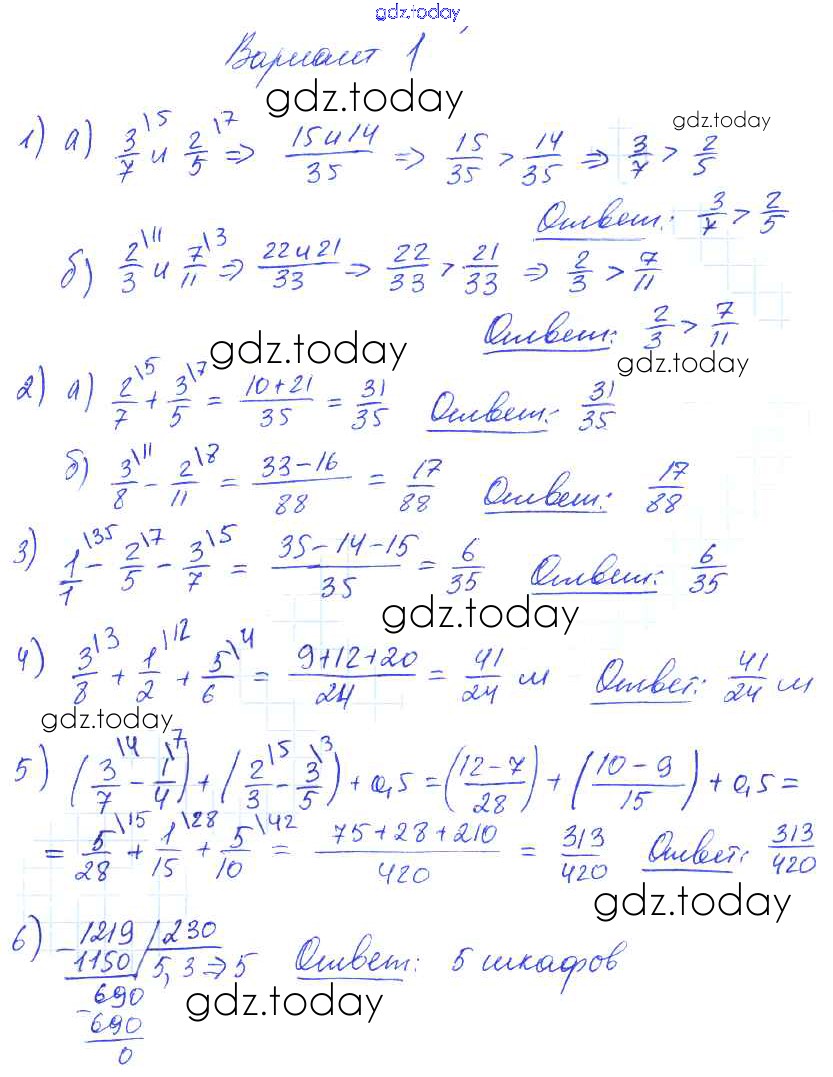 gdz.today
Вариант 1
gdz.today
gdz.today
1) а) 3/7 \5 и 2/5 \7 => 15 и 14/35 => 15/35 > 14/35 => 3/7 > 2/5
Ответ: 3/7 > 2/5
б) 2/3 \11 и 7/11 \3 => 22 и 21/33 => 22/33 > 21/33 => 2/3 > 7/11
Ответ: 2/3 > 7/11
gdz.today
gdz.today
2) а) 2/7 \5 + 3/5 \7 = 10+21/35 = 31/35 Ответ: 31/35
б) 3/8 \11 - 2/11 \8 = 33-16/88 = 17/88 Ответ: 17/88
3) 1/1 \35 - 2/5 \7 - 3/7 \5 = 35-14-15/35 = 6/35 Ответ: 6/35
gdz.today
4) 3/8 \3 + 1/2 \12 + 5/6 \4 = 9+12+20/24 = 41/24 м Ответ: 41/24 м
gdz.today
5) (3/7 \4 - 1/4 \7) + (2/3 \5 - 3/5 \3) + 0,5 = (12-7/28) + (10-9/15) + 0,5 =
= 5/28 \15 + 1/15 \28 + 5/10 \42 = 75+28+210/420 = 313/420 Ответ: 313/420
gdz.today
6) -1219 / 230
1150 5,3 => 5 Ответ: 5 шкафов
-690
690
0
gdz.today